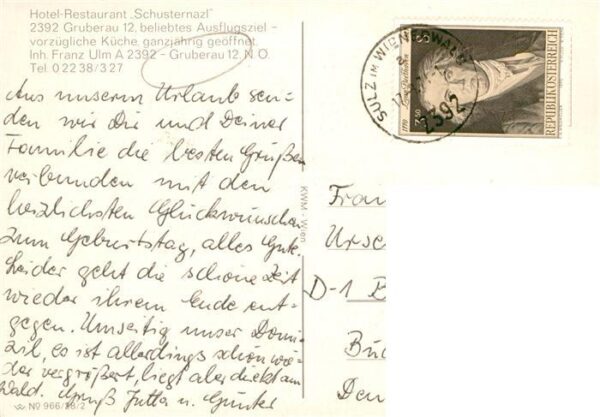 Hotel-Restaurant „Schusternazl"
2392 Gruberau 12, beliebtes Ausflugsziel –
vorzügliche Küche, ganzjährig geöffnet.
Inh. Franz Ulm A 2392 - Gruberau 12, N.Ö.
Tel. 0 22 38/3 27
Aus unserm Urlaub sen-
den wir Dir und Deiner
Familie die besten Grüße
verbunden mit den
herzlichsten Glückwünschen
zum Geburtstag, alles Gute
Leider geht die schöne Zeit
wieder ihrem Ende ent-
gegen. Umseitig unser Domi-
zil, es ist allerdings schon wie-
der vergrößert, liegt aber direkt am
Wald. Gruß Jutta u. Günter
No 966/28/2
KWM - Wien
SULZ IM WIENERWALD
2392
1770
REPUBLIK ÖSTERREICH
Frau
Urs
D-1 B
Bu
Den